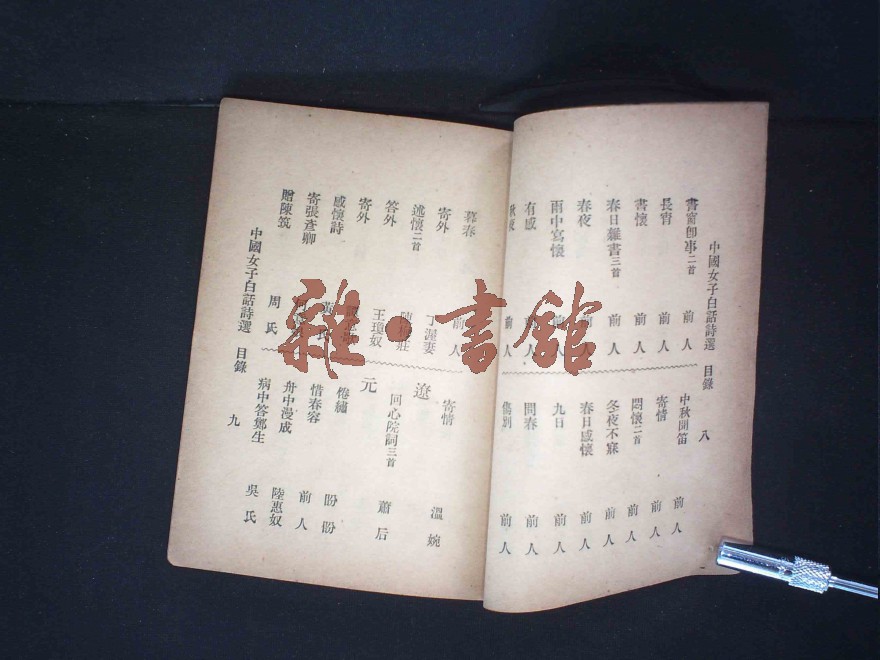 中國女子白話詩選 目錄 八
書窗卽事二首 前人
長宵 前人
書懷 前人
春日雜書三首 前人
春夜 前人
雨中寫懷 前人
有感 前人
秋夜 前人
中秋聞笛 前人
寄情 前人
悶懷二首 前人
冬夜不寐 前人
春日感懷 前人
九日 前人
問春 前人
傷別 前人
暮春 前人
寄外 丁渥妻
述懷二首
答外 王瓊奴
寄外
感懷詩
寄張彥卿
贈陳筑 周氏
寄情 溫婉
遼
同心院詞三首 蕭后
元
倦繡 盼盼
惜春容 前人
舟中漫成 陸惠奴
病中答鄭生 吳氏
中國女子白話詩選 目錄 九
雜·書館